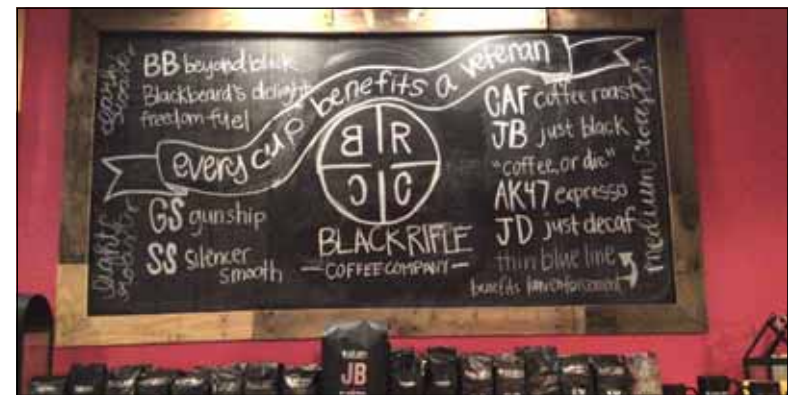 dark roasts
BB beyond black
Blackbeard's delight
freedom fuel
every cup benefits a veteran
light roasts
GS gunship
SS silencer
smooth
B R
C C
BLACK RIFLE
COFFEE COMPANY
medium roasts
CAF coffee roast
JB just black
"coffee, or die"
AK47 expresso
JD just decaf
thin blue line
benefits law enforcement
JB